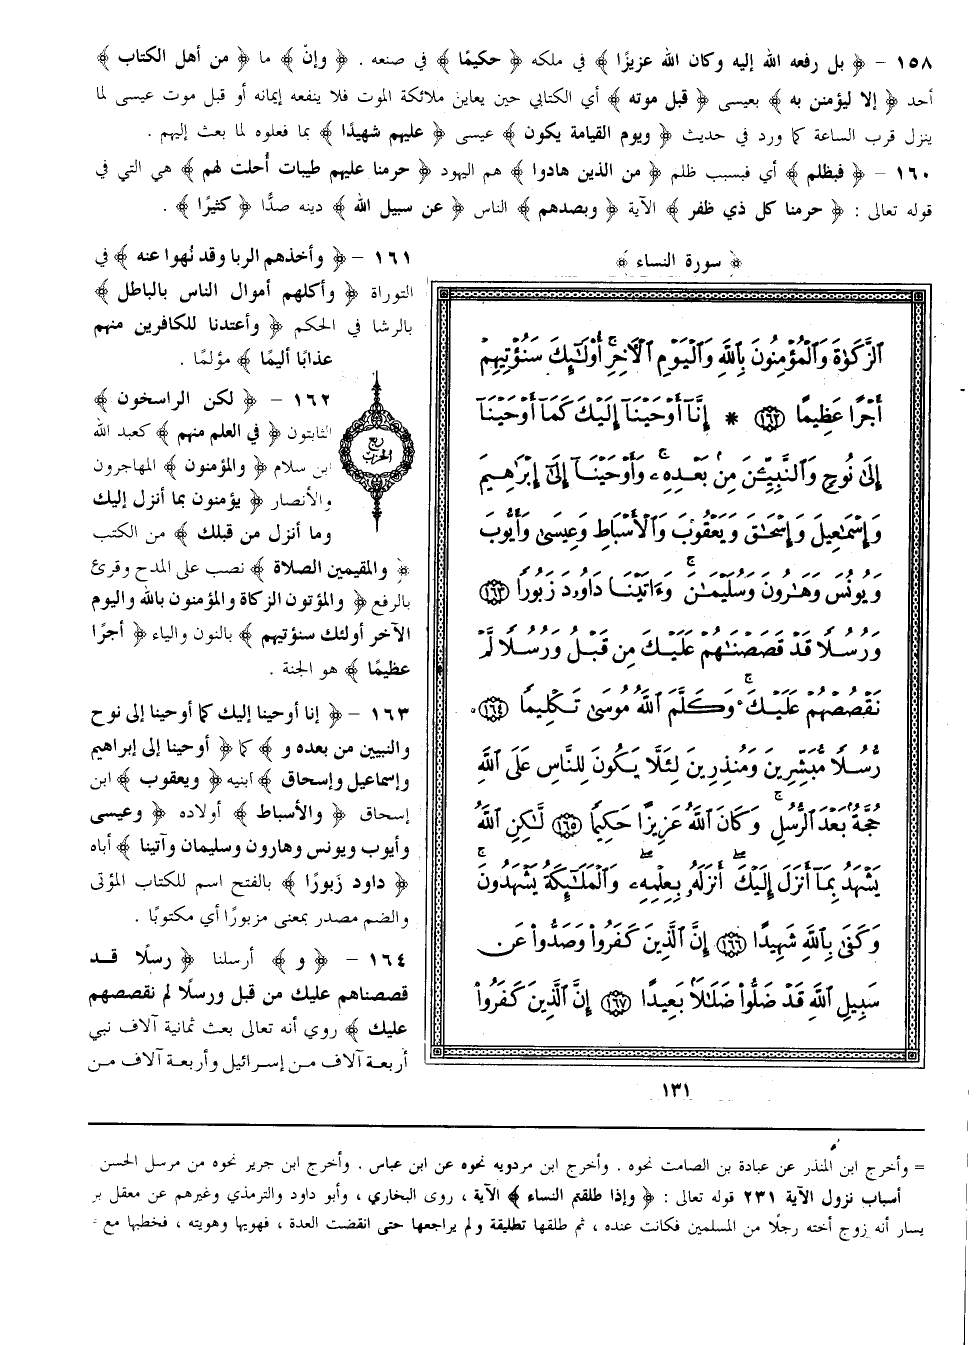 ١٥٨ - ﴿ بل رفعه الله إليه وكان الله عزيزًا ﴾ في ملكه ﴿ حكيمًا ﴾ في صنعه . ﴿ وإنّ ﴾ ما ﴿ من أهل الكتاب ﴾
أحد ﴿ إلا ليؤمنن به ﴾ بعيسى ﴿ قبل موته ﴾ أي الكتابي حين يعاين ملائكة الموت فلا ينفعه إيمانه أو قبل موت عيسى لما
ينزل قرب الساعة كما ورد في حديث ﴿ ويوم القيامة يكون ﴾ عيسى ﴿ عليهم شهيدًا ﴾ بما فعلوه لما بعث إليهم .
١٦٠ - ﴿ فبظلم ﴾ أي فبسبب ظلم ﴿ من الذين هادوا ﴾ هم اليهود ﴿ حرمنا عليهم طيبات أُحلت لهم ﴾ هي التي في
قوله تعالى : ﴿ حرمنا كل ذي ظفر ﴾ الآية ﴿ وبصدهم ﴾ الناس ﴿ عن سبيل الله ﴾ دينه صدًّا ﴿ كثيرًا ﴾ .
﴿ سورة النساء ﴾
ٱلزَّكَوٰةَ وَٱلْمُؤْمِنُونَ بِٱللَّهِ وَٱلْيَوْمِ ٱلْأَخِرِ أُوْلَـٰٓئِكَ سَنُؤْتِيهِمْ
أَجْرًا عَظِيمًا ﴿١٦٢﴾ * إِنَّآ أَوْحَيْنَآ إِلَيْكَ كَمَآ أَوْحَيْنَآ
إِلَىٰ نُوحٍ وَٱلنَّبِيِّـۧنَ مِنۢ بَعْدِهِۦ وَأَوْحَيْنَآ إِلَىٰٓ إِبْرَٰهِيمَ
وَإِسْمَـٰعِيلَ وَإِسْحَـٰقَ وَيَعْقُوبَ وَٱلْأَسْبَاطِ وَعِيسَىٰ وَأَيُّوبَ
وَيُونُسَ وَهَـٰرُونَ وَسُلَيْمَـٰنَ وَءَاتَيْنَا دَاوُۥدَ زَبُورًا ﴿١٦٣﴾
وَرُسُلًا قَدْ قَصَصْنَـٰهُمْ عَلَيْكَ مِن قَبْلُ وَرُسُلًا لَّمْ
نَقْصُصْهُمْ عَلَيْكَ وَكَلَّمَ ٱللَّهُ مُوسَىٰ تَكْلِيمًا ﴿١٦٤﴾
رُّسُلًا مُّبَشِّرِينَ وَمُنذِرِينَ لِئَلَّا يَكُونَ لِلنَّاسِ عَلَى ٱللَّهِ
حُجَّةٌۢ بَعْدَ ٱلرُّسُلِ وَكَانَ ٱللَّهُ عَزِيزًا حَكِيمًا ﴿١٦٥﴾ لَّـٰكِنِ ٱللَّهُ
يَشْهَدُ بِمَآ أَنزَلَ إِلَيْكَ أَنزَلَهُۥ بِعِلْمِهِۦ وَٱلْمَلَـٰٓئِكَةُ يَشْهَدُونَ
وَكَفَىٰ بِٱللَّهِ شَهِيدًا ﴿١٦٦﴾ إِنَّ ٱلَّذِينَ كَفَرُواْ وَصَدُّواْ عَن
سَبِيلِ ٱللَّهِ قَدْ ضَلُّواْ ضَلَـٰلًۢا بَعِيدًا ﴿١٦٧﴾ إِنَّ ٱلَّذِينَ كَفَرُواْ
١٣١
١٦١ - ﴿ وأخذهم الربا وقد نُهوا عنه ﴾ في
التوراة ﴿ وأكلهم أموال الناس بالباطل ﴾
بالرشا في الحكم ﴿ وأعتدنا للكافرين منهم
عذابًا أليمًا ﴾ مؤلمًا .
١٦٢ - ﴿ لكن الراسخون ﴾
الثابتون ﴿ في العلم منهم ﴾ كعبد الله
ابن سلام ﴿ والمؤمنون ﴾ المهاجرون
والأنصار ﴿ يؤمنون بما أنزل إليك
وما أنزل من قبلك ﴾ من الكتب
﴿ والمقيمين الصلاة ﴾ نصب على المدح وقرئ
بالرفع ﴿ والمؤتون الزكاة والمؤمنون بالله واليوم
الآخر أولئك سنؤتيهم ﴾ بالنون والياء ﴿ أجرًا
عظيمًا ﴾ هو الجنة .
ربع
الحزب
١٦٣ - ﴿ إنا أوحينا إليك كما أوحينا إلى نوح
والنبيين من بعده و ﴾ كما ﴿ أوحينا إلى إبراهيم
وإسماعيل وإسحاق ﴾ ابنيه ﴿ ويعقوب ﴾ ابن
إسحاق ﴿ والأسباط ﴾ أولاده ﴿ وعيسى
وأيوب ويونس وهارون وسليمان وآتينا ﴾ أباه
﴿ داود زَبورًا ﴾ بالفتح اسم للكتاب المؤتى
والضم مصدر بمعنى مزبورًا أي مكتوبًا .
١٦٤ - ﴿ و ﴾ أرسلنا ﴿ رسلًا قد
قصصناهم عليك من قبل ورسلًا لم نقصصهم
عليك ﴾ روي أنه تعالى بعث ثمانية آلاف نبي
أربعة آلاف من إسرائيل وأربعة آلاف من
= وأخرج ابن المنذر عن عبادة بن الصامت نحوه . وأخرج ابن مردويه نحوه عن ابن عباس . وأخرج ابن جرير نحوه من مرسل الحسن
أسباب نزول الآية ٢٣١ قوله تعالى : ﴿ وإذا طلقتم النساء ﴾ الآية ، روى البخاري ، وأبو داود والترمذي وغيرهم عن معقل بر
يسار أنه زوج أخته رجلًا من المسلمين فكانت عنده ، ثم طلقها تطليقة ولم يراجعها حتى انقضت العدة ، فهويها وهويته ، فخطبها مع =